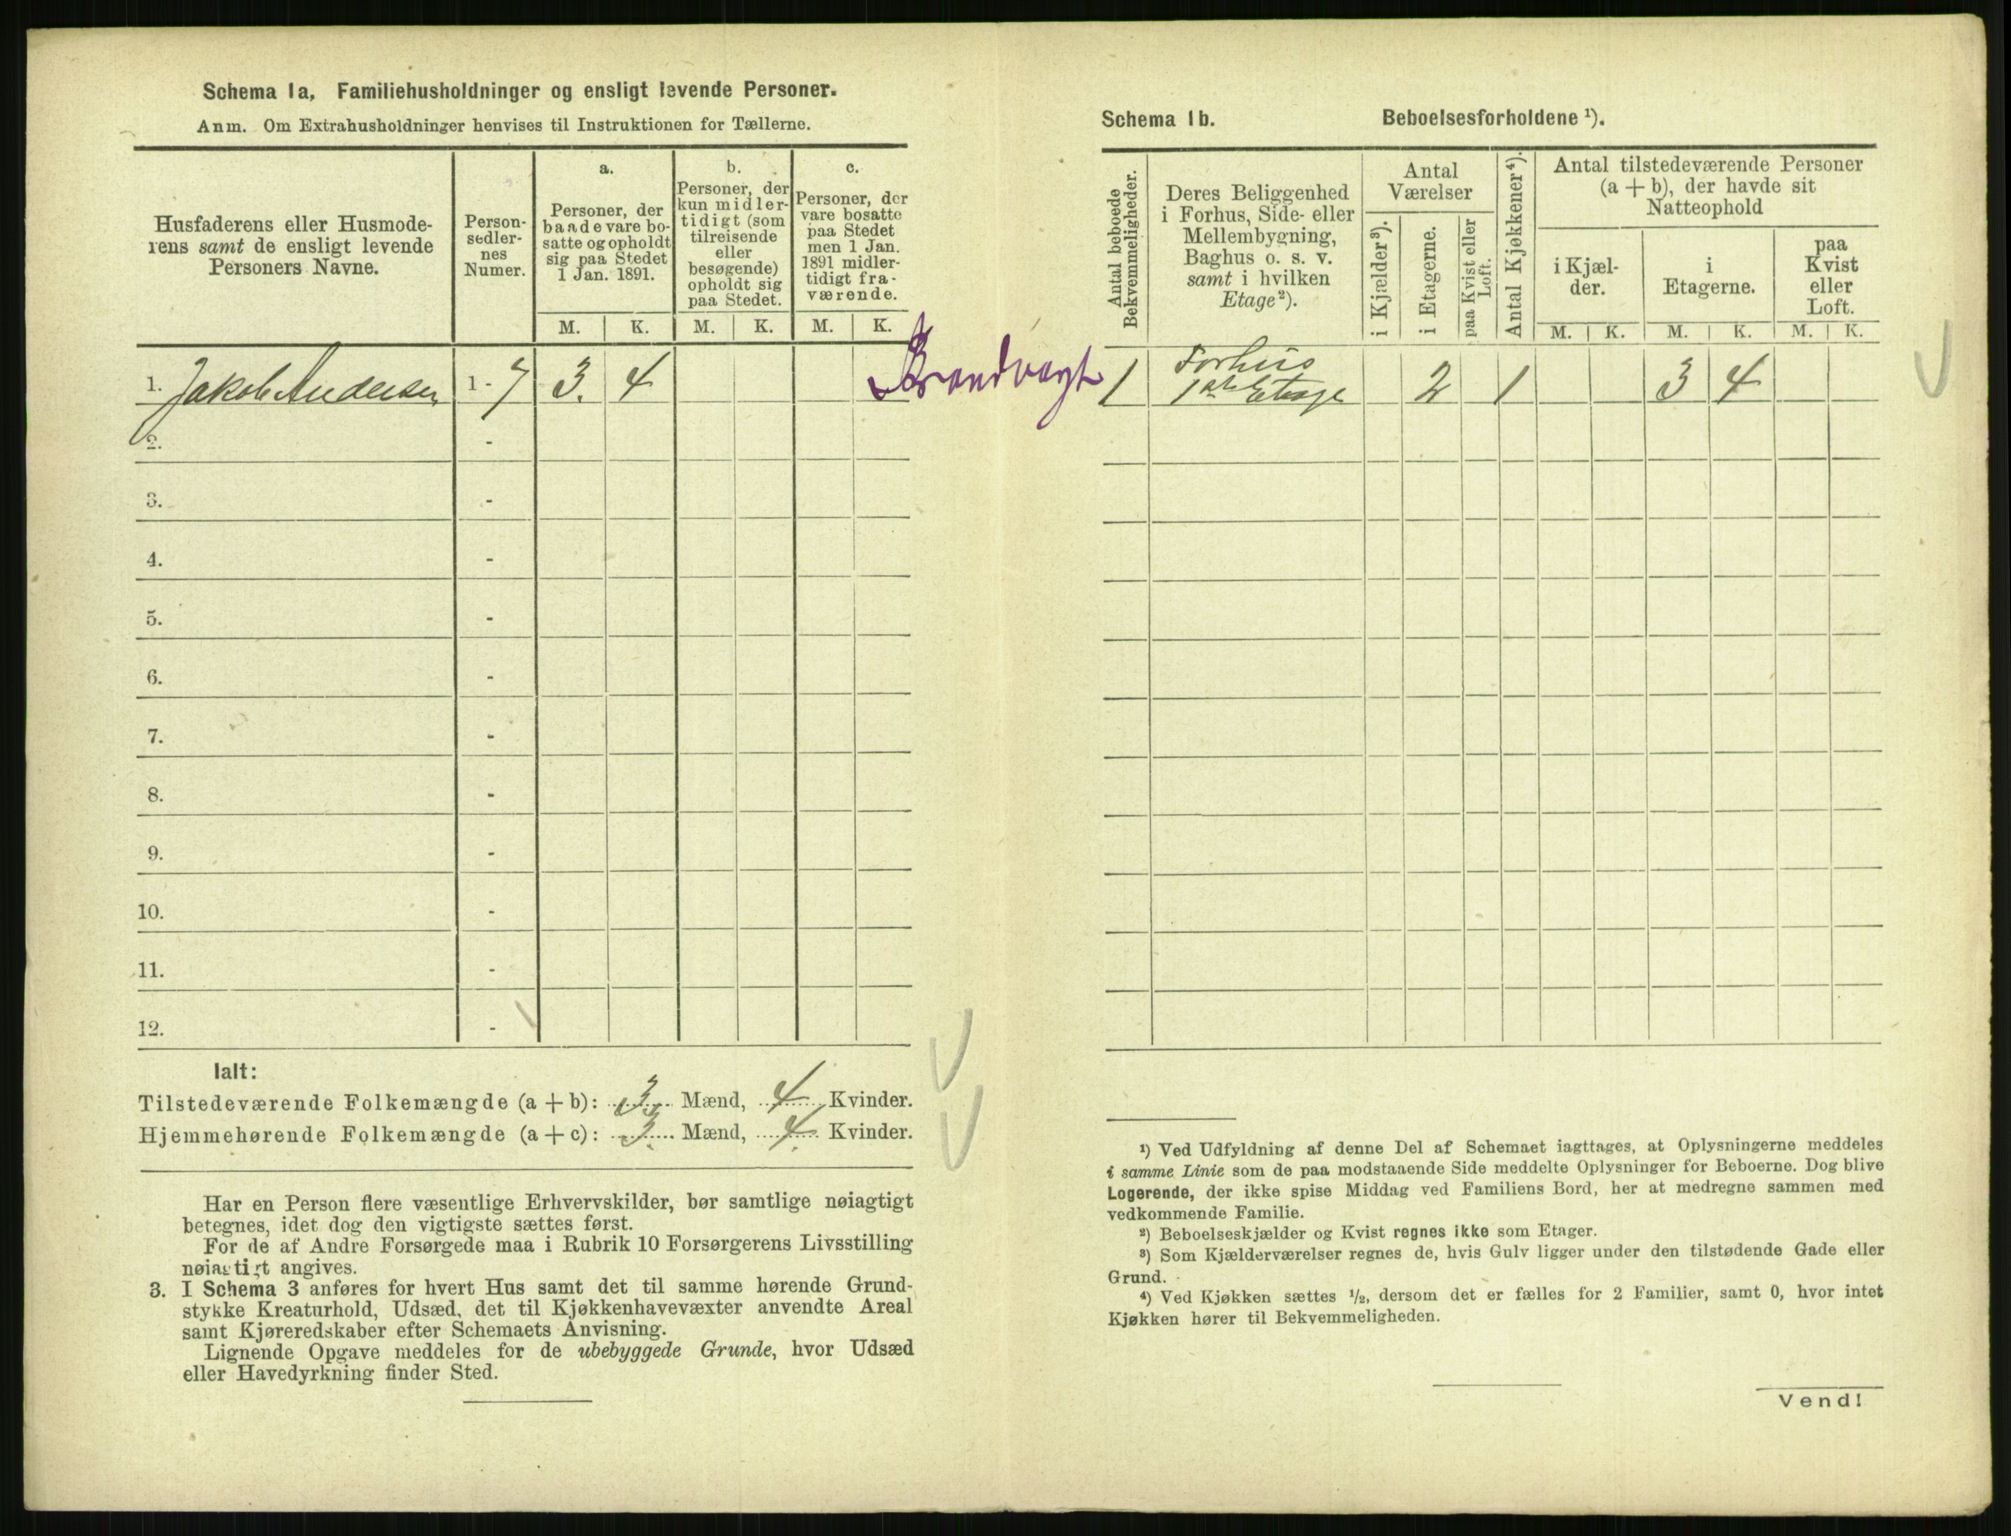 Schema 1a, Familiehusholdninger og ensligt levende Personer.
Anm. Om Extrahusholdninger henvises til Instruktionen for Tællerne.
Husfaderens eller Husmode-
rens samt de ensligt levende
Personers Navne.
Person-
sedler-
nes
Numer.
a.
Personer, der
baade vare bo-
satte og opholdt
sig paa Stedet
1 Jan. 1891.
b.
Personer, der
kun midler-
tidigt (som
tilreisende
eller
besøgende)
opholdt sig
paa Stedet.
c.
Personer, der
vare bosatte
paa Stedet
men 1 Jan.
1891 midler-
tidigt fra-
værende.
M. K. M. K. M. K.
1. Jakob Andersen 1 - 7 3. 4 Brandvagt
2. -
3. -
4. -
5. -
6. -
7. -
8. -
9. -
10. -
11. -
12. -
Ialt:
Tilstedeværende Folkemængde (a + b): 3 Mænd, 4 Kvinder.
Hjemmehørende Folkemængde (a + c): 3 Mænd, 4 Kvinder.
Har en Person flere væsentlige Erhvervskilder, bør samtlige nøiagtigt
betegnes, idet dog den vigtigste sættes først.
For de af Andre Forsørgede maa i Rubrik 10 Forsørgerens Livsstilling
nøiagtigt angives.
3. I Schema 3 anføres for hvert Hus samt det til samme hørende Grund-
stykke Kreaturhold, Udsæd, det til Kjøkkenhavevæxter anvendte Areal
samt Kjøreredskaber efter Schemaets Anvisning.
Lignende Opgave meddeles for de ubebyggede Grunde, hvor Udsæd
eller Havedyrkning finder Sted.
Schema 1b. Beboelsesforholdene ¹).
Antal beboede
Bekvemmeligheder.
Deres Beliggenhed
i Forhus, Side- eller
Mellembygning,
Baghus o. s. v.
samt i hvilken
Etage²).
Antal
Værelser
i Kjælder³).
i Etagerne.
paa Kvist eller
Loft.
Antal Kjøkkener⁴).
Antal tilstedeværende Personer
(a + b), der havde sit
Natteophold
i Kjæl-
der.
i
Etagerne.
paa
Kvist
eller
Loft.
M. K. M. K. M. K.
1 Forhus
1ste Etage 2 1 3 4
¹) Ved Udfyldning af denne Del af Schemaet iagttages, at Oplysningerne meddeles
i samme Linie som de paa modstaaende Side meddelte Oplysninger for Beboerne. Dog blive
Logerende, der ikke spise Middag ved Familiens Bord, her at medregne sammen med
vedkommende Familie.
²) Beboelseskjælder og Kvist regnes ikke som Etager.
³) Som Kjælderværelser regnes de, hvis Gulv ligger under den tilstødende Gade eller
Grund.
⁴) Ved Kjøkken sættes ½, dersom det er fælles for 2 Familier, samt 0, hvor intet
Kjøkken hører til Bekvemmeligheden.
Vend!